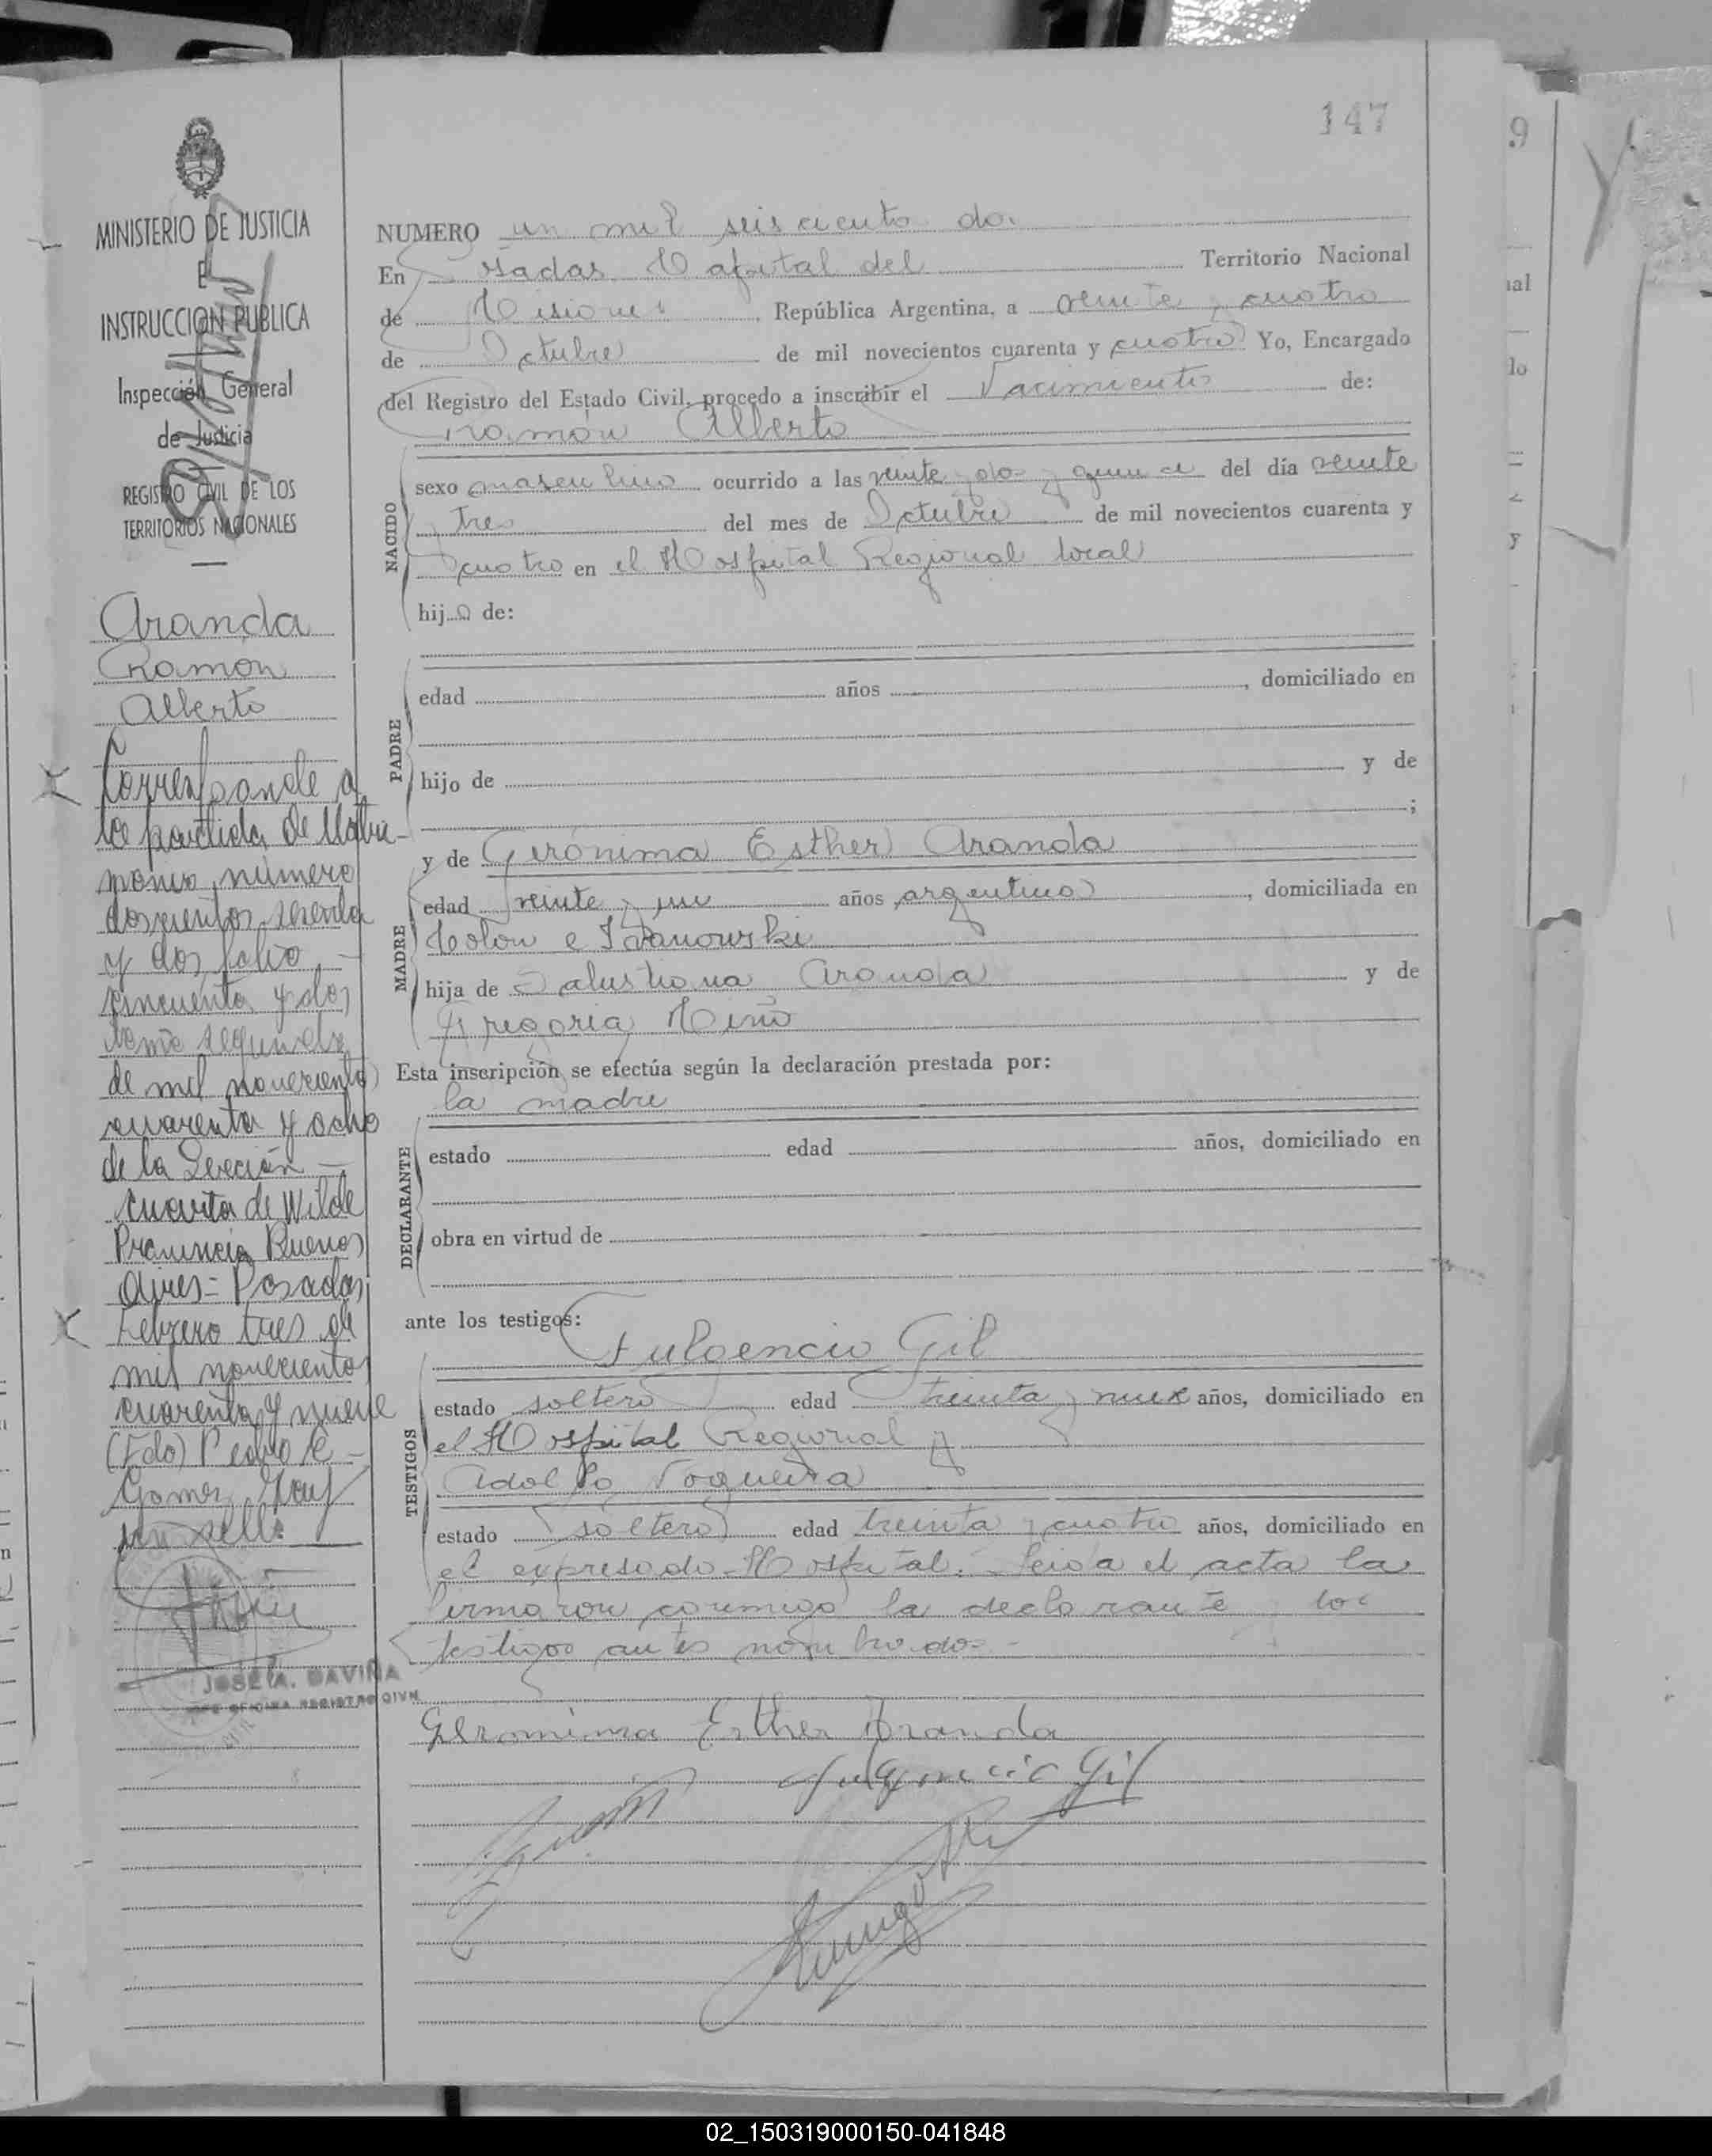 147
MINISTERIO DE JUSTICIA
E
INSTRUCCION PUBLICA
Inspección General
de Justicia
REGISTRO CIVIL DE LOS
TERRITORIOS NACIONALES
Aranda
Ramón
Alberto
Corresponde a
la partida de Matri-
monio, número
doscientos
y dos, folio
cincuenta y dos
tomo segundo
de mil novecientos
cuarenta y ocho
de la Sección
cuarta de Wilde
Provincia Buenos
Aires - Posadas,
Febrero tres de
mil novecientos
cuarenta y nueve
(Fdo) Pedro
Gomez Hay
un sello
JOSE A. DAVIÑA
JEFE OFICINA REGISTRO CIVIL
NUMERO un mil seiscientos dos
En Posadas Capital del Territorio Nacional
de Misiones República Argentina, a veinte y cuatro
de Octubre de mil novecientos cuarenta y cuatro Yo, Encargado
del Registro del Estado Civil, procedo a inscribir el Nacimiento de:
Ramón Alberto
NACIDO
sexo masculino ocurrido a las veinte y dos y quince del día veinte
y tres del mes de Octubre de mil novecientos cuarenta y
cuatro en el Hospital Regional local
hijo de:
PADRE
edad años , domiciliado en
hijo de y de
;
MADRE
y de Gerónima Esther Aranda
edad veinte y un años argentina , domiciliada en
Colon e Ivanowski
hija de Salustiana Aranda y de
Gregoria Miño
Esta inscripción se efectúa según la declaración prestada por:
la madre
DECLARANTE
estado edad años, domiciliado en
obra en virtud de
ante los testigos:
Fulgencio Gil
TESTIGOS
estado soltero edad treinta y nueve años, domiciliado en
el Hospital Regional y
Adolfo Nogueira
estado soltero edad treinta y cuatro años, domiciliado en
el expresado Hospital. Leida el acta la
firmaron conmigo la declarante y los
testigos antes nombrados.-
Geronima Esther Aranda
Fulgencio Gil
02_150319000150-041848